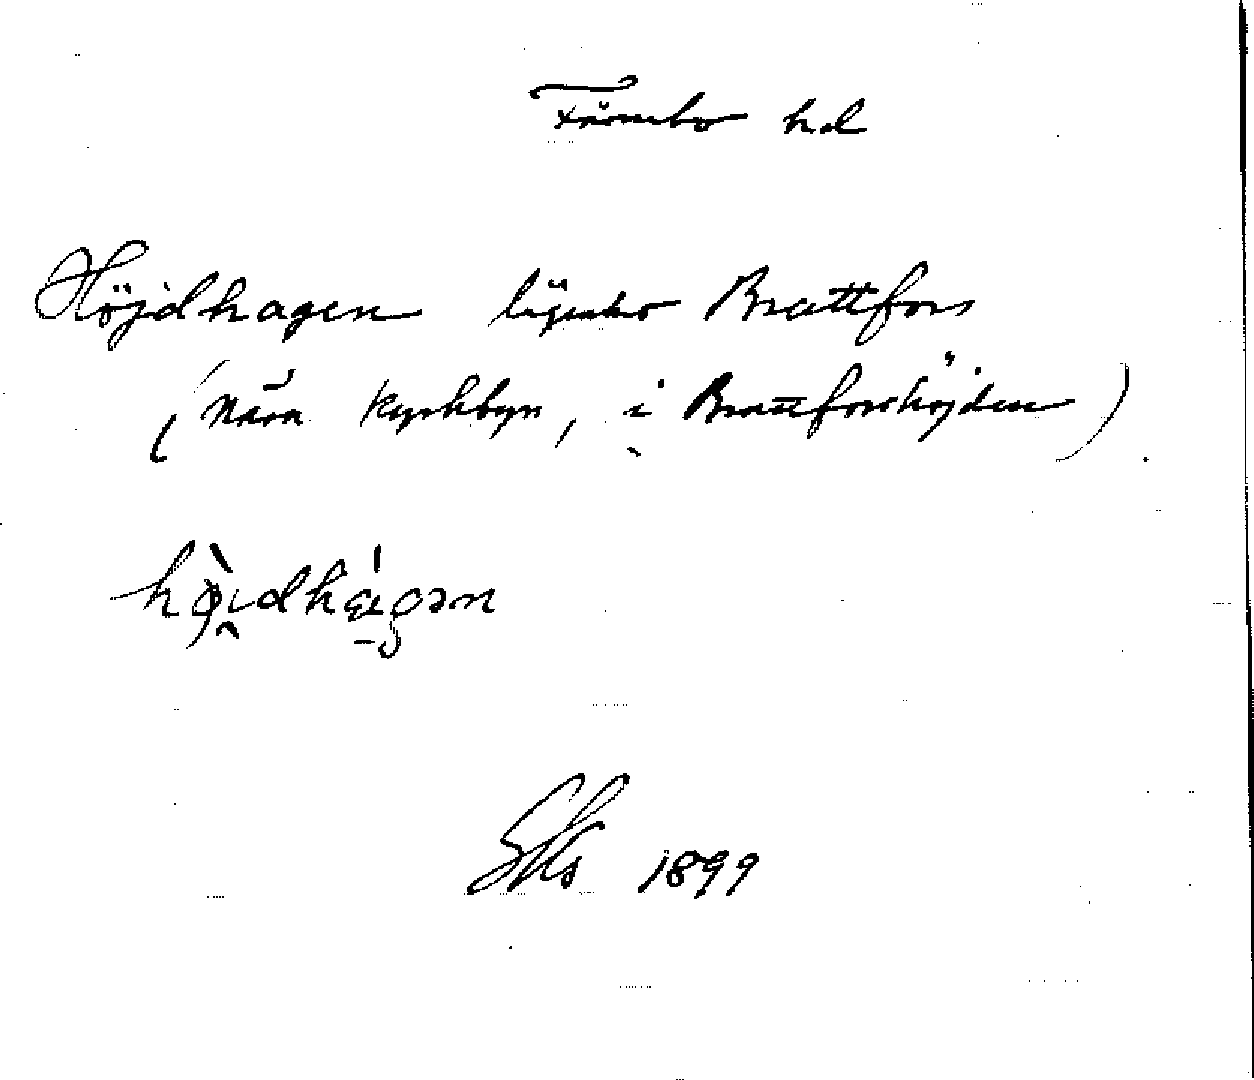 Färnebo hd
Höjdhagen lägenh. Brattfors
(nära kyrkbyn, i Brattforshöjden).
hø̀i̯dhá̱gən
1899